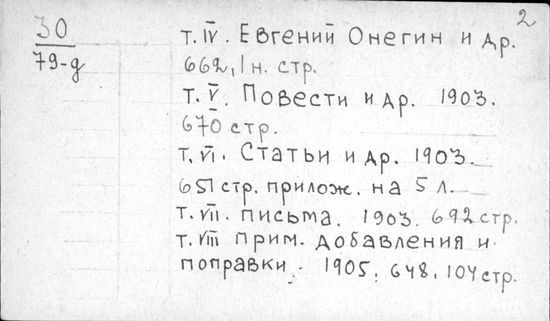 2
30
79-д
т. IV. Евгений Онегин и др.
662, 1 н. стр.
т. V. Повести и др. 1903.
670 стр.
т. VI. Статьи и др. 1903.
651 стр. прилож. на 5 л.
т. VII. письма. 1903. 692 стр.
т. VIII прим. добавления и
поправки. 1905. 648, 104 стр.